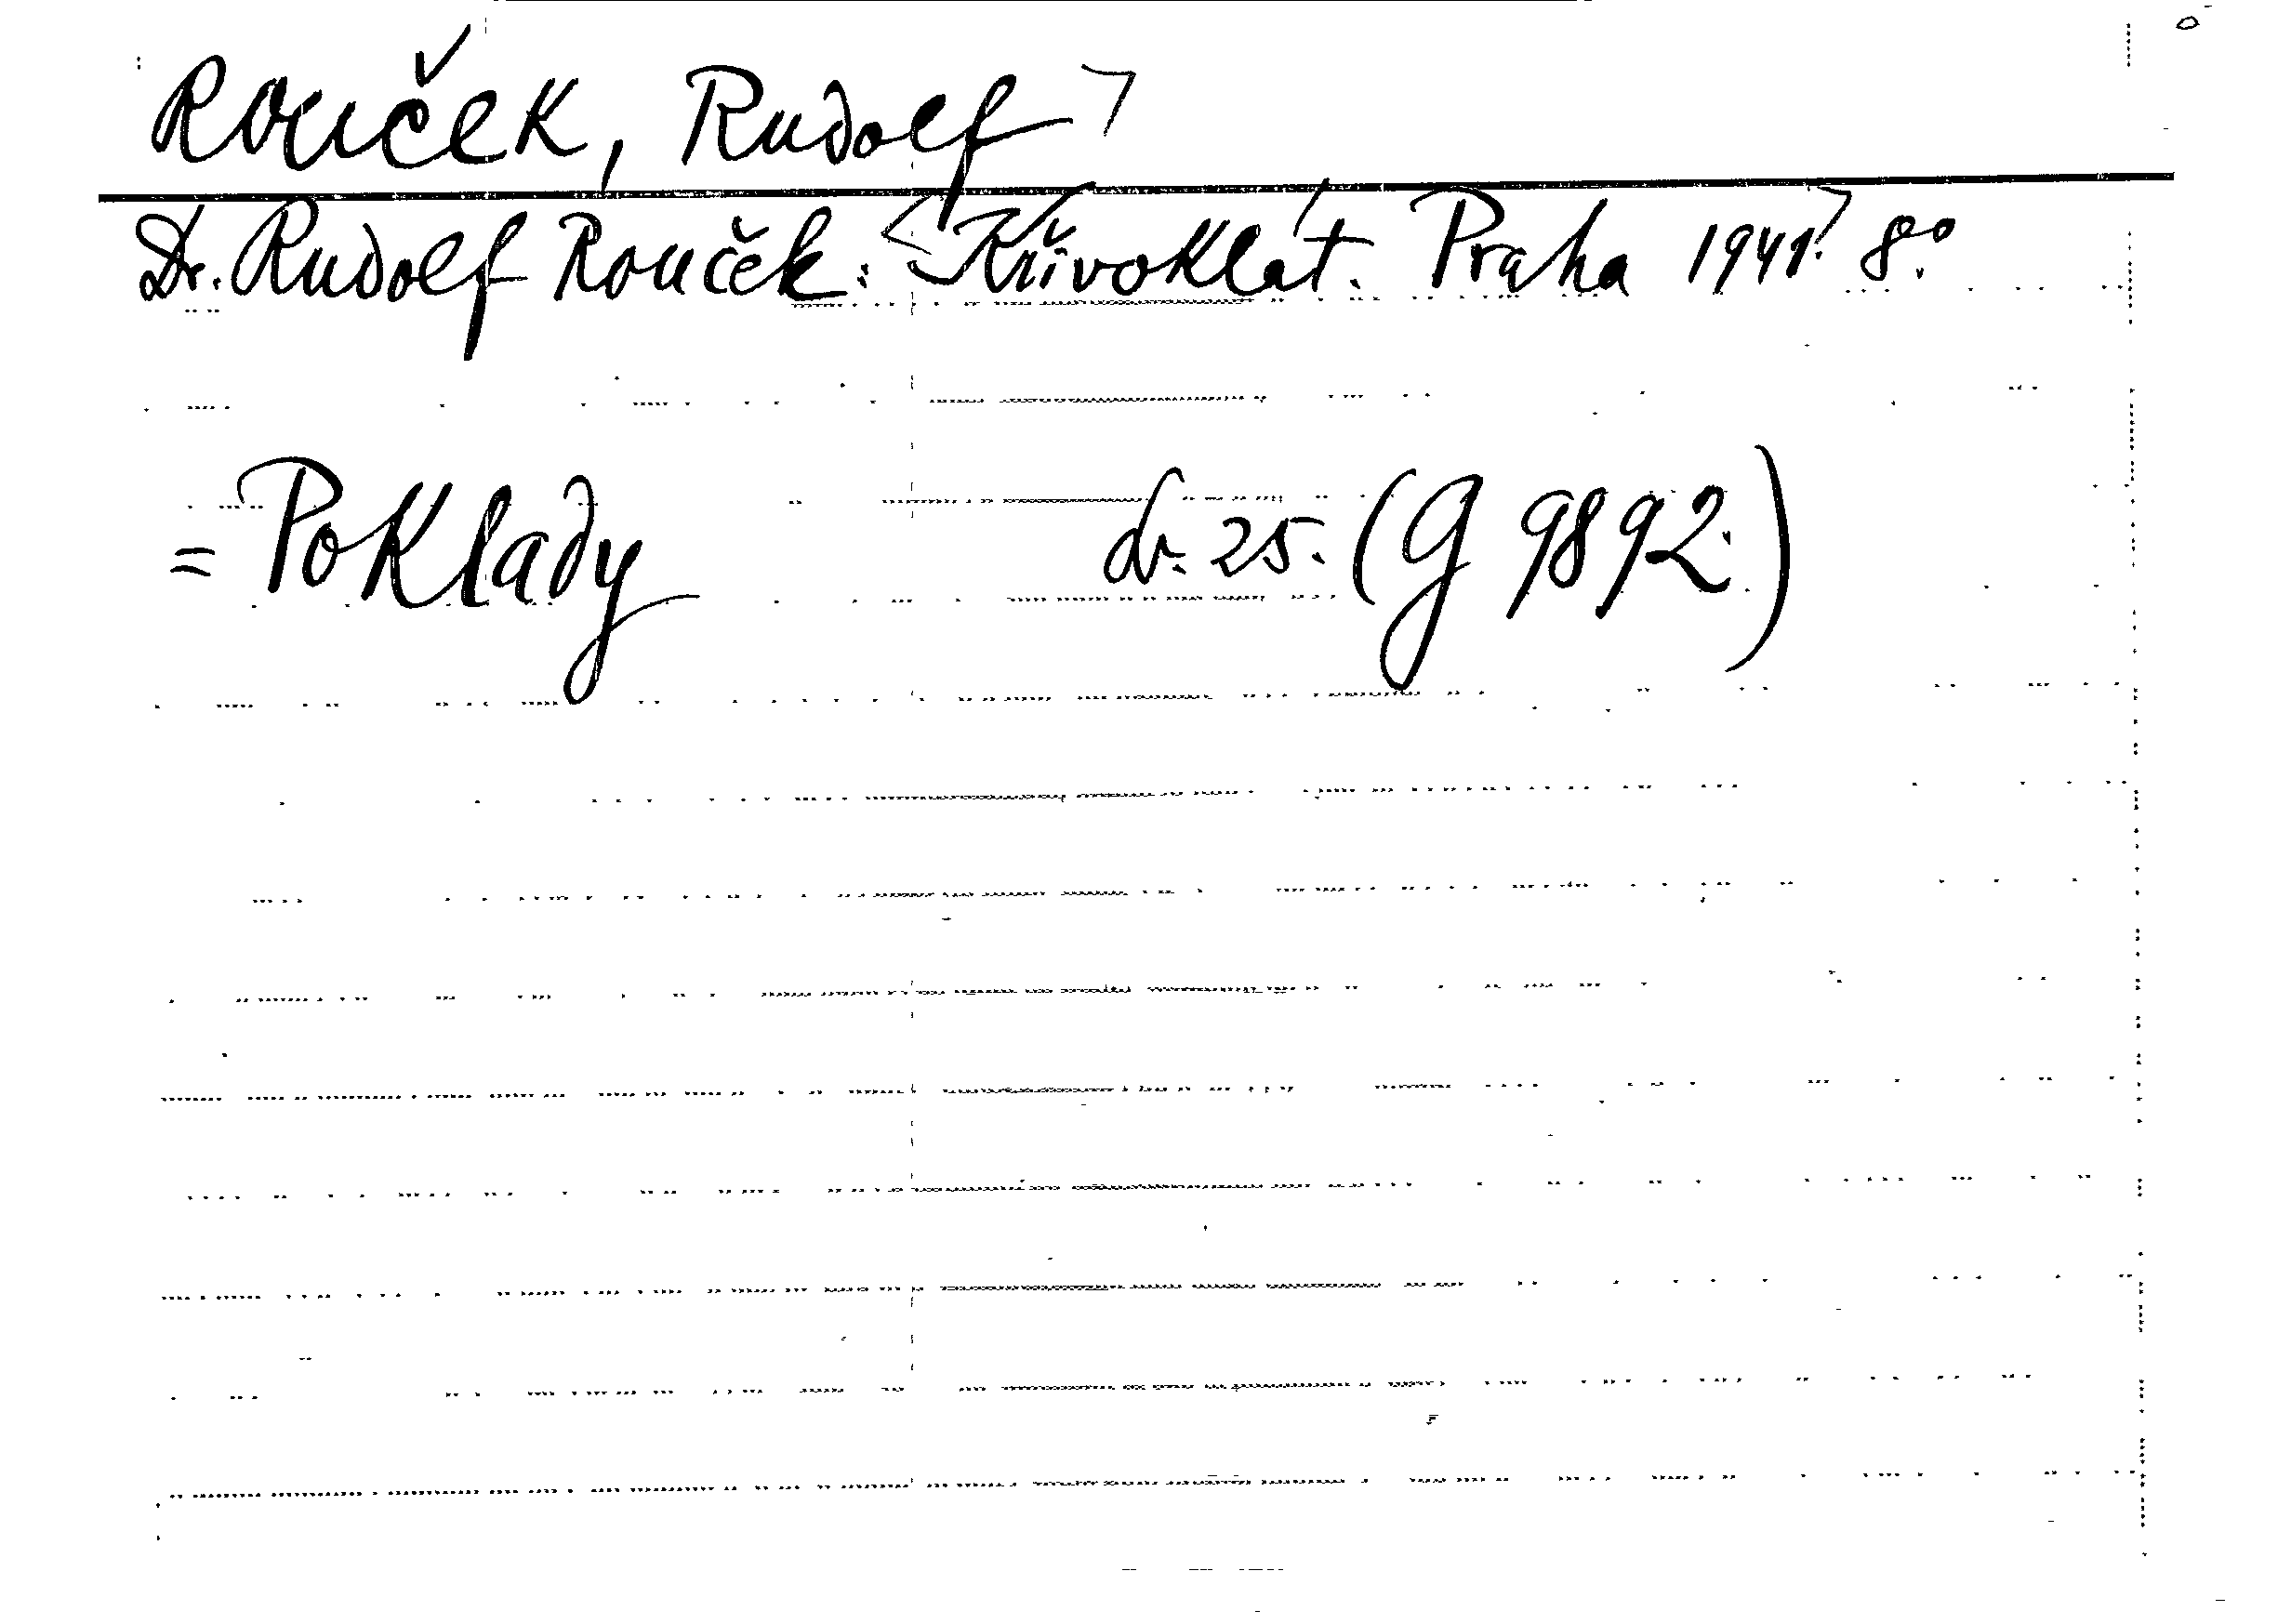 Rouček, Rudolf
Dr. Rudolf Rouček: Křivoklát. Praha 1941. 8°.
= Poklady dr. 25. (G 9892.)